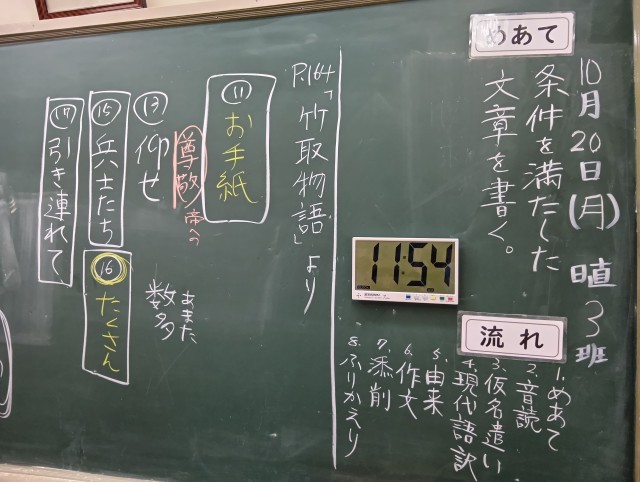 10月20日(月) 植3班
めあて
条件を満たした
文章を書く。
流れ
1.めあて
2.音読
3.仮名遣い
4.現代語訳
5.由来
6.作文
7.添削
8.ふりかえり
11:54
P.164「竹取物語」より
⑪お手紙
尊敬 帝への
⑬仰せ
あまた
数多
⑮兵士たち
⑯たくさん
⑰引き連れて